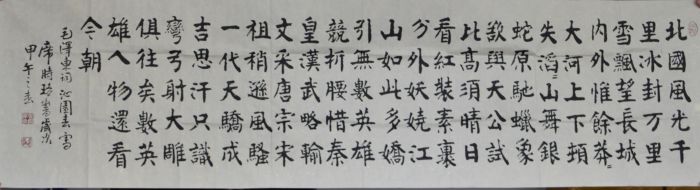 北國風光千
里冰封万里
雪飄望長城
内外惟餘莽々
大河上下頓
失滔々山舞銀
蛇原馳蠟象
欲與天公試
比高須晴日
看紅裝素裹
分外妖嬈江
山如此多嬌
引無數英雄
競折腰惜秦
皇漢武略輸
文采唐宗宋
祖稍遜風騷
一代天驕成
吉思汗只識
彎弓射大雕
俱往矣數英
雄人物還看
今朝
毛澤東詞沁園春雪
席時珍書歲次
甲午之春